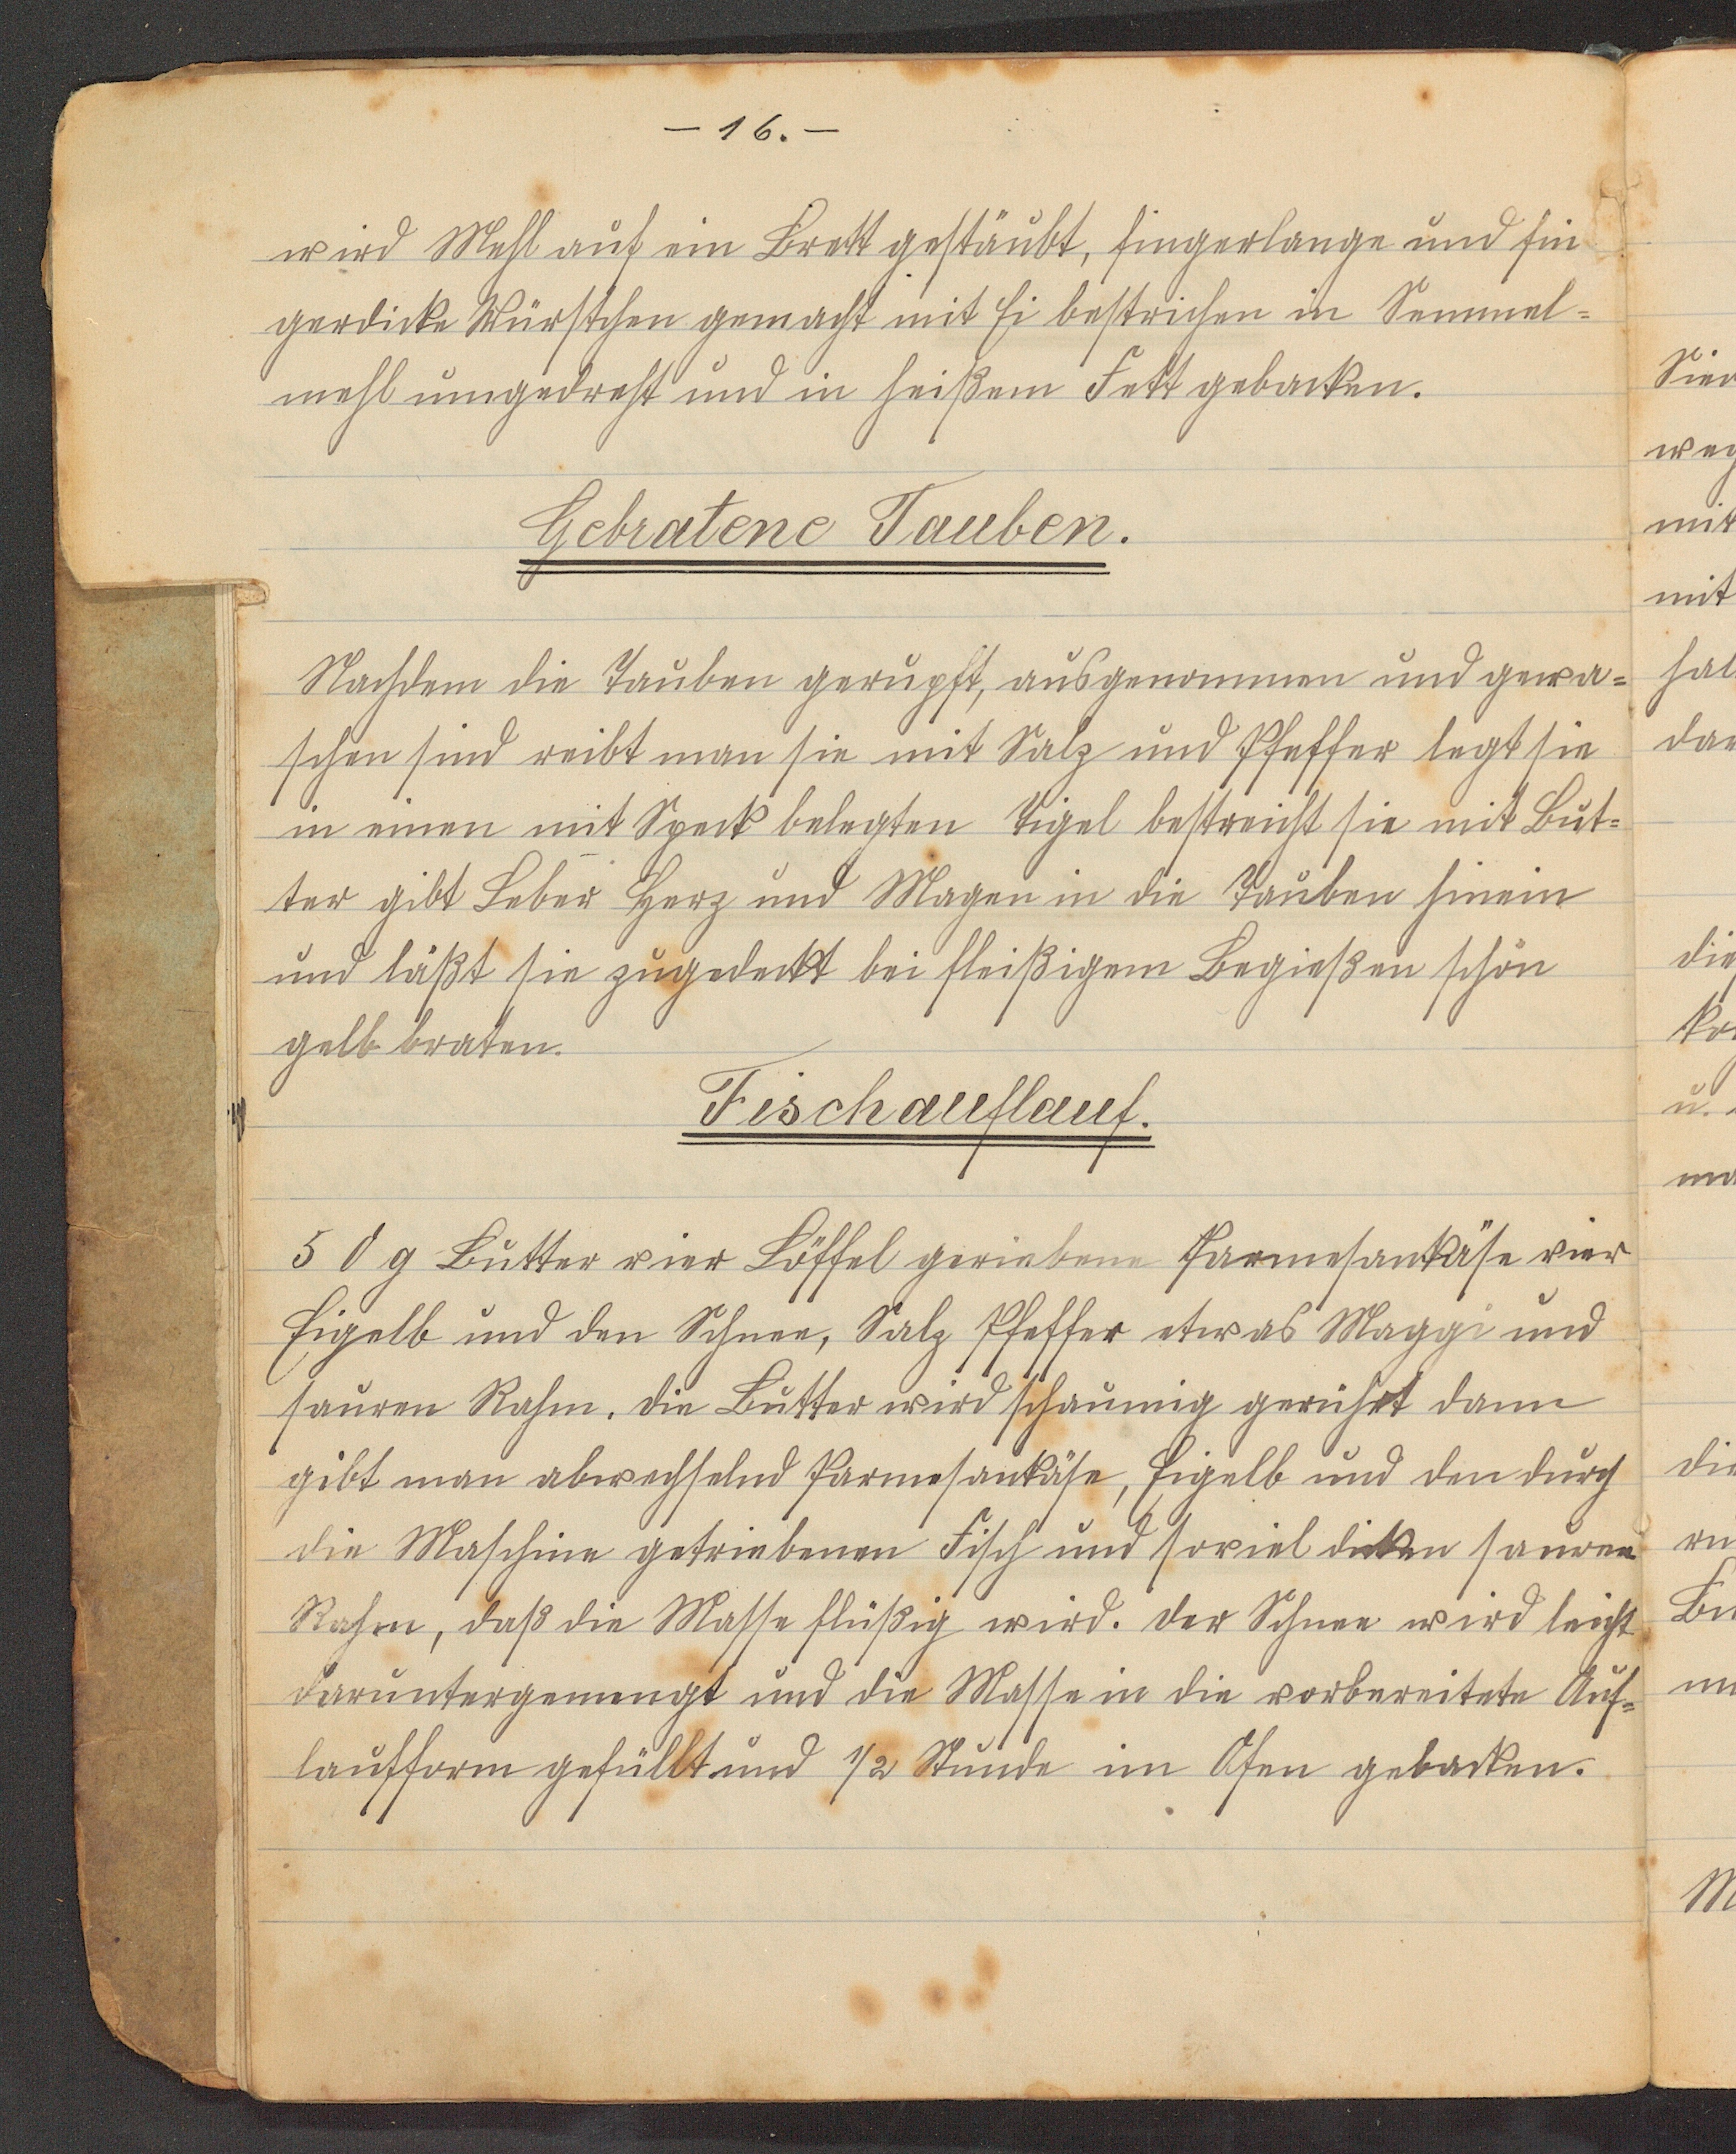 - 16. -
wird Mehl auf ein Brett gestäubt, fingerlange und fin
gerdicke Würstchen gemacht mit Ei bestrichen in Semmel=
mehl umgedreht und in heißem Fett gebacken.
Gebratene Tauben.
Nachdem die Tauben gerupft, ausgenommen und gewa=
schen sind reibt man sie mit Salz und Pfeffer legt sie
in einen mit Speck belegten Tigel bestreicht sie mit But=
ter gibt Leber Herz und Magen in die Tauben hinein
und läßt sie zugedeckt bei fleißigem Begießen schön
gelb braten.
Fischauflauf.
50 g Butter vier Löffel geriebene Parmesankäse vier
Eigelb und den Schnee, Salz Pfeffer etwas Maggi und
sauren Rahm. Die Butter wird schaumig gerührt dann
gibt man abwechselnd Parmesankäse, Eigelb und den durch
die Maschine getriebenen Fisch und soviel dicken sauren
Rahm, daß die Masse flüßig wird. Der Schnee wird leicht
daruntergemengt und die Masse in die vorbereitete Auf=
laufform gefüllt und 1/2 Stunde im Ofen gebacken.